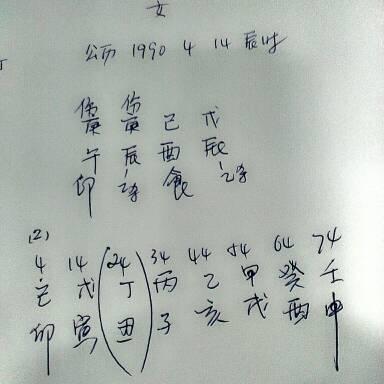 女
公历 1990 4 14 辰时
伤 伤
庚 庚 己 戊
午 辰 酉 辰
卯 食
(2)
4 14 (24) 34 44 54 64 74
辛 戊 丁 丙 乙 甲 癸 壬
卯 寅 丑 子 亥 戌 酉 申